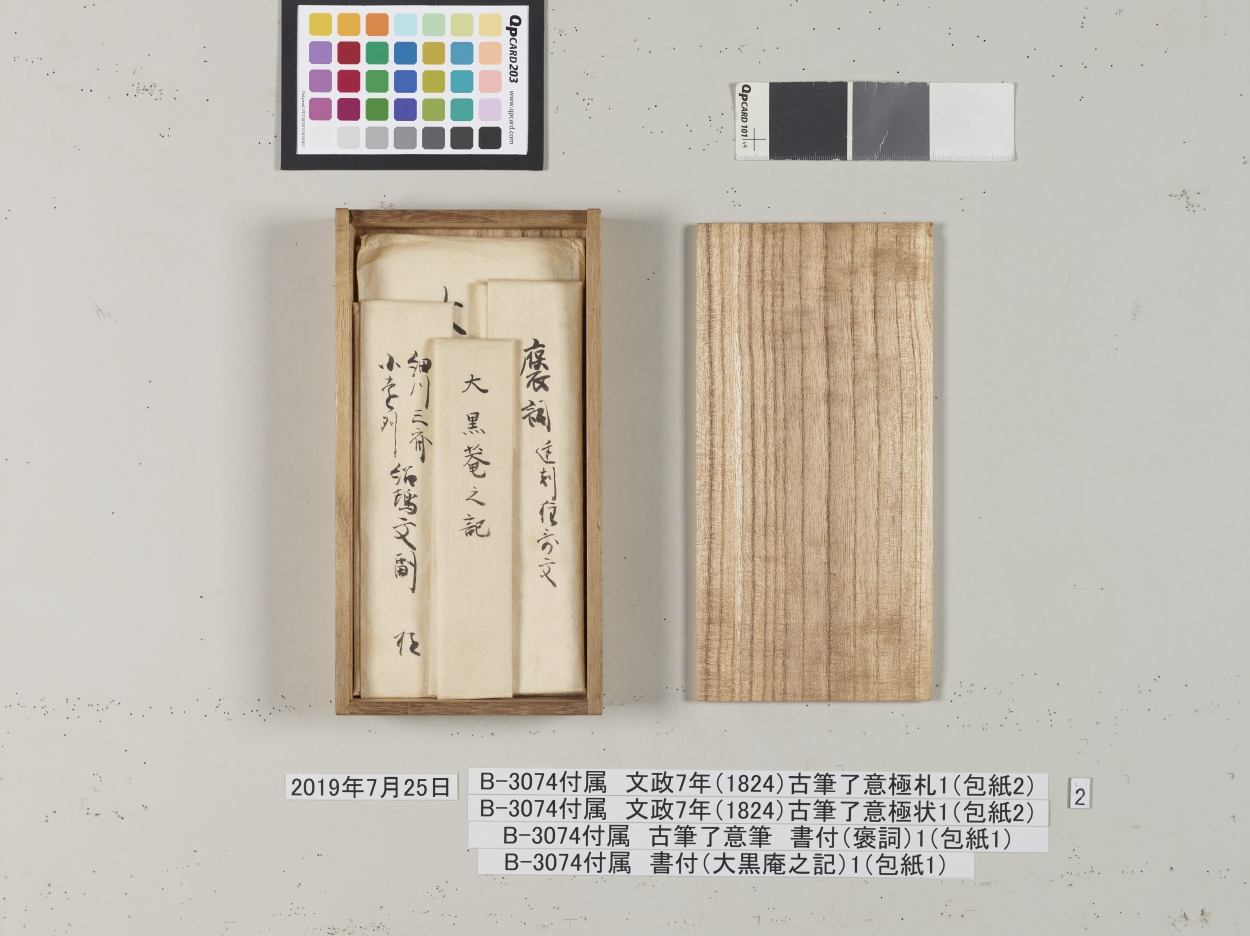 QPCARD 203
www.qpcard.com
QPCARD 101 v4
褒詞
大黒菴之記
細川三斎
小遠州
紹鴎文副
極
2019年7月25日
B-3074付属 文政7年(1824)古筆了意極札1(包紙2)
B-3074付属 文政7年(1824)古筆了意極状1(包紙2)
B-3074付属 古筆了意筆 書付(褒詞)1(包紙1)
B-3074付属 書付(大黒庵之記)1(包紙1)
2